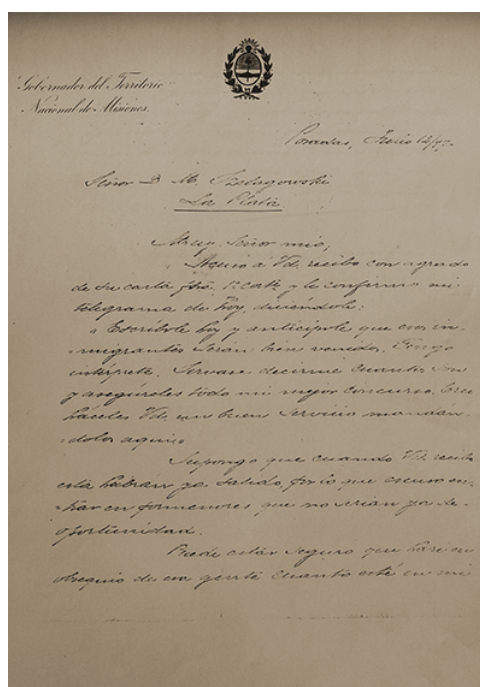 Gobernador del Territorio
Nacional de Misiones.
Posadas, Junio 14/97.
Señor D. M. Szelagowski
La Plata
Muy Señor mio;
Acuso á Vd. recibo con agrado
de su carta fha. 1º corte y le confirmo mi
telegrama de hoy, diciéndole:
"Escríbole hoy y anticípole que esos in-
-migrantes serán bien venidos. Tengo
intérprete. Sírvase decirme cuantos son
y asegúreles todo mi mejor concurso. Cree
háceles Vd. un buen servicio mandan-
-dolos aquí"
Supongo que cuando Vd. reciba
esta habran ya salido, por lo que escuso en-
-trar en pormenores que no serian ya de
oportunidad.
Puede estar seguro que haré en
obsequio de esa gente cuanto esté en mi